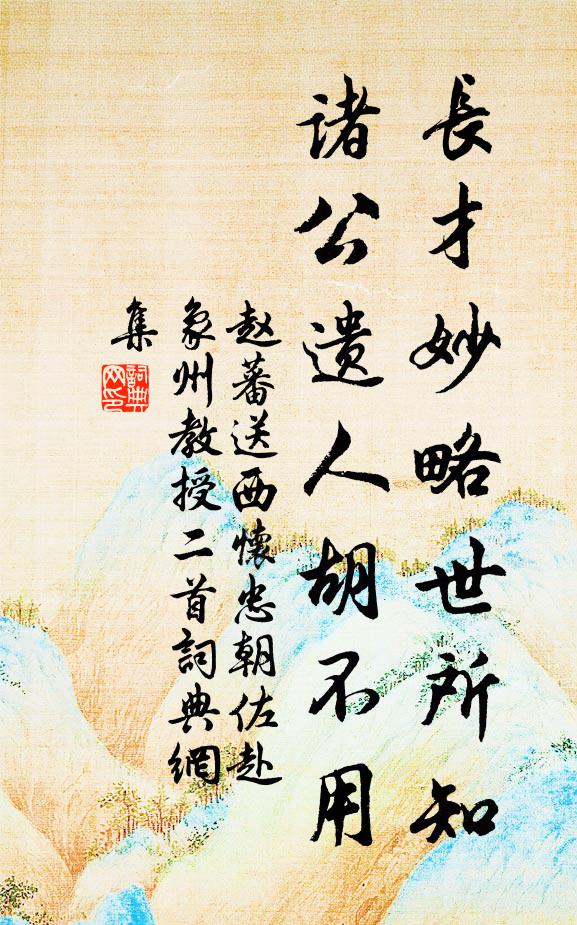 長才妙略世所知
諸公遗人胡不用
赵蕃送西懷忠朝佐赴
象州教授二首詞典網
集
詞典網印